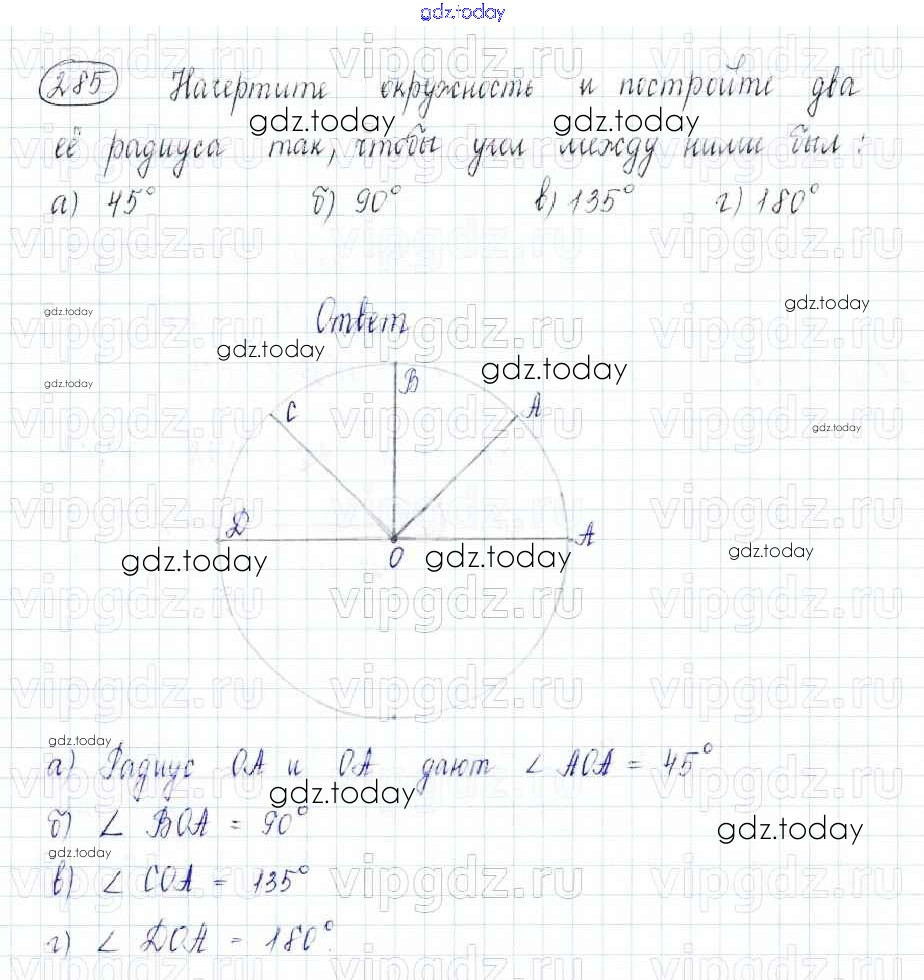 gdz.today
285 Начертите окружность и постройте два
gdz.today gdz.today
её радиуса так, чтобы угол между ними был:
а) 45° б) 90° в) 135° г) 180°
vipgdz.ru
gdz.today
Ответ
gdz.today
gdz.today
gdz.today
gdz.today
gdz.today
B
C
A
Д
A
O
gdz.today gdz.today gdz.today
gdz.today
а) Радиус OA и OA дают ∠ AOA = 45°
gdz.today
б) ∠ BOA = 90°
gdz.today
gdz.today
в) ∠ COA = 135°
г) ∠ ДOA = 180°.